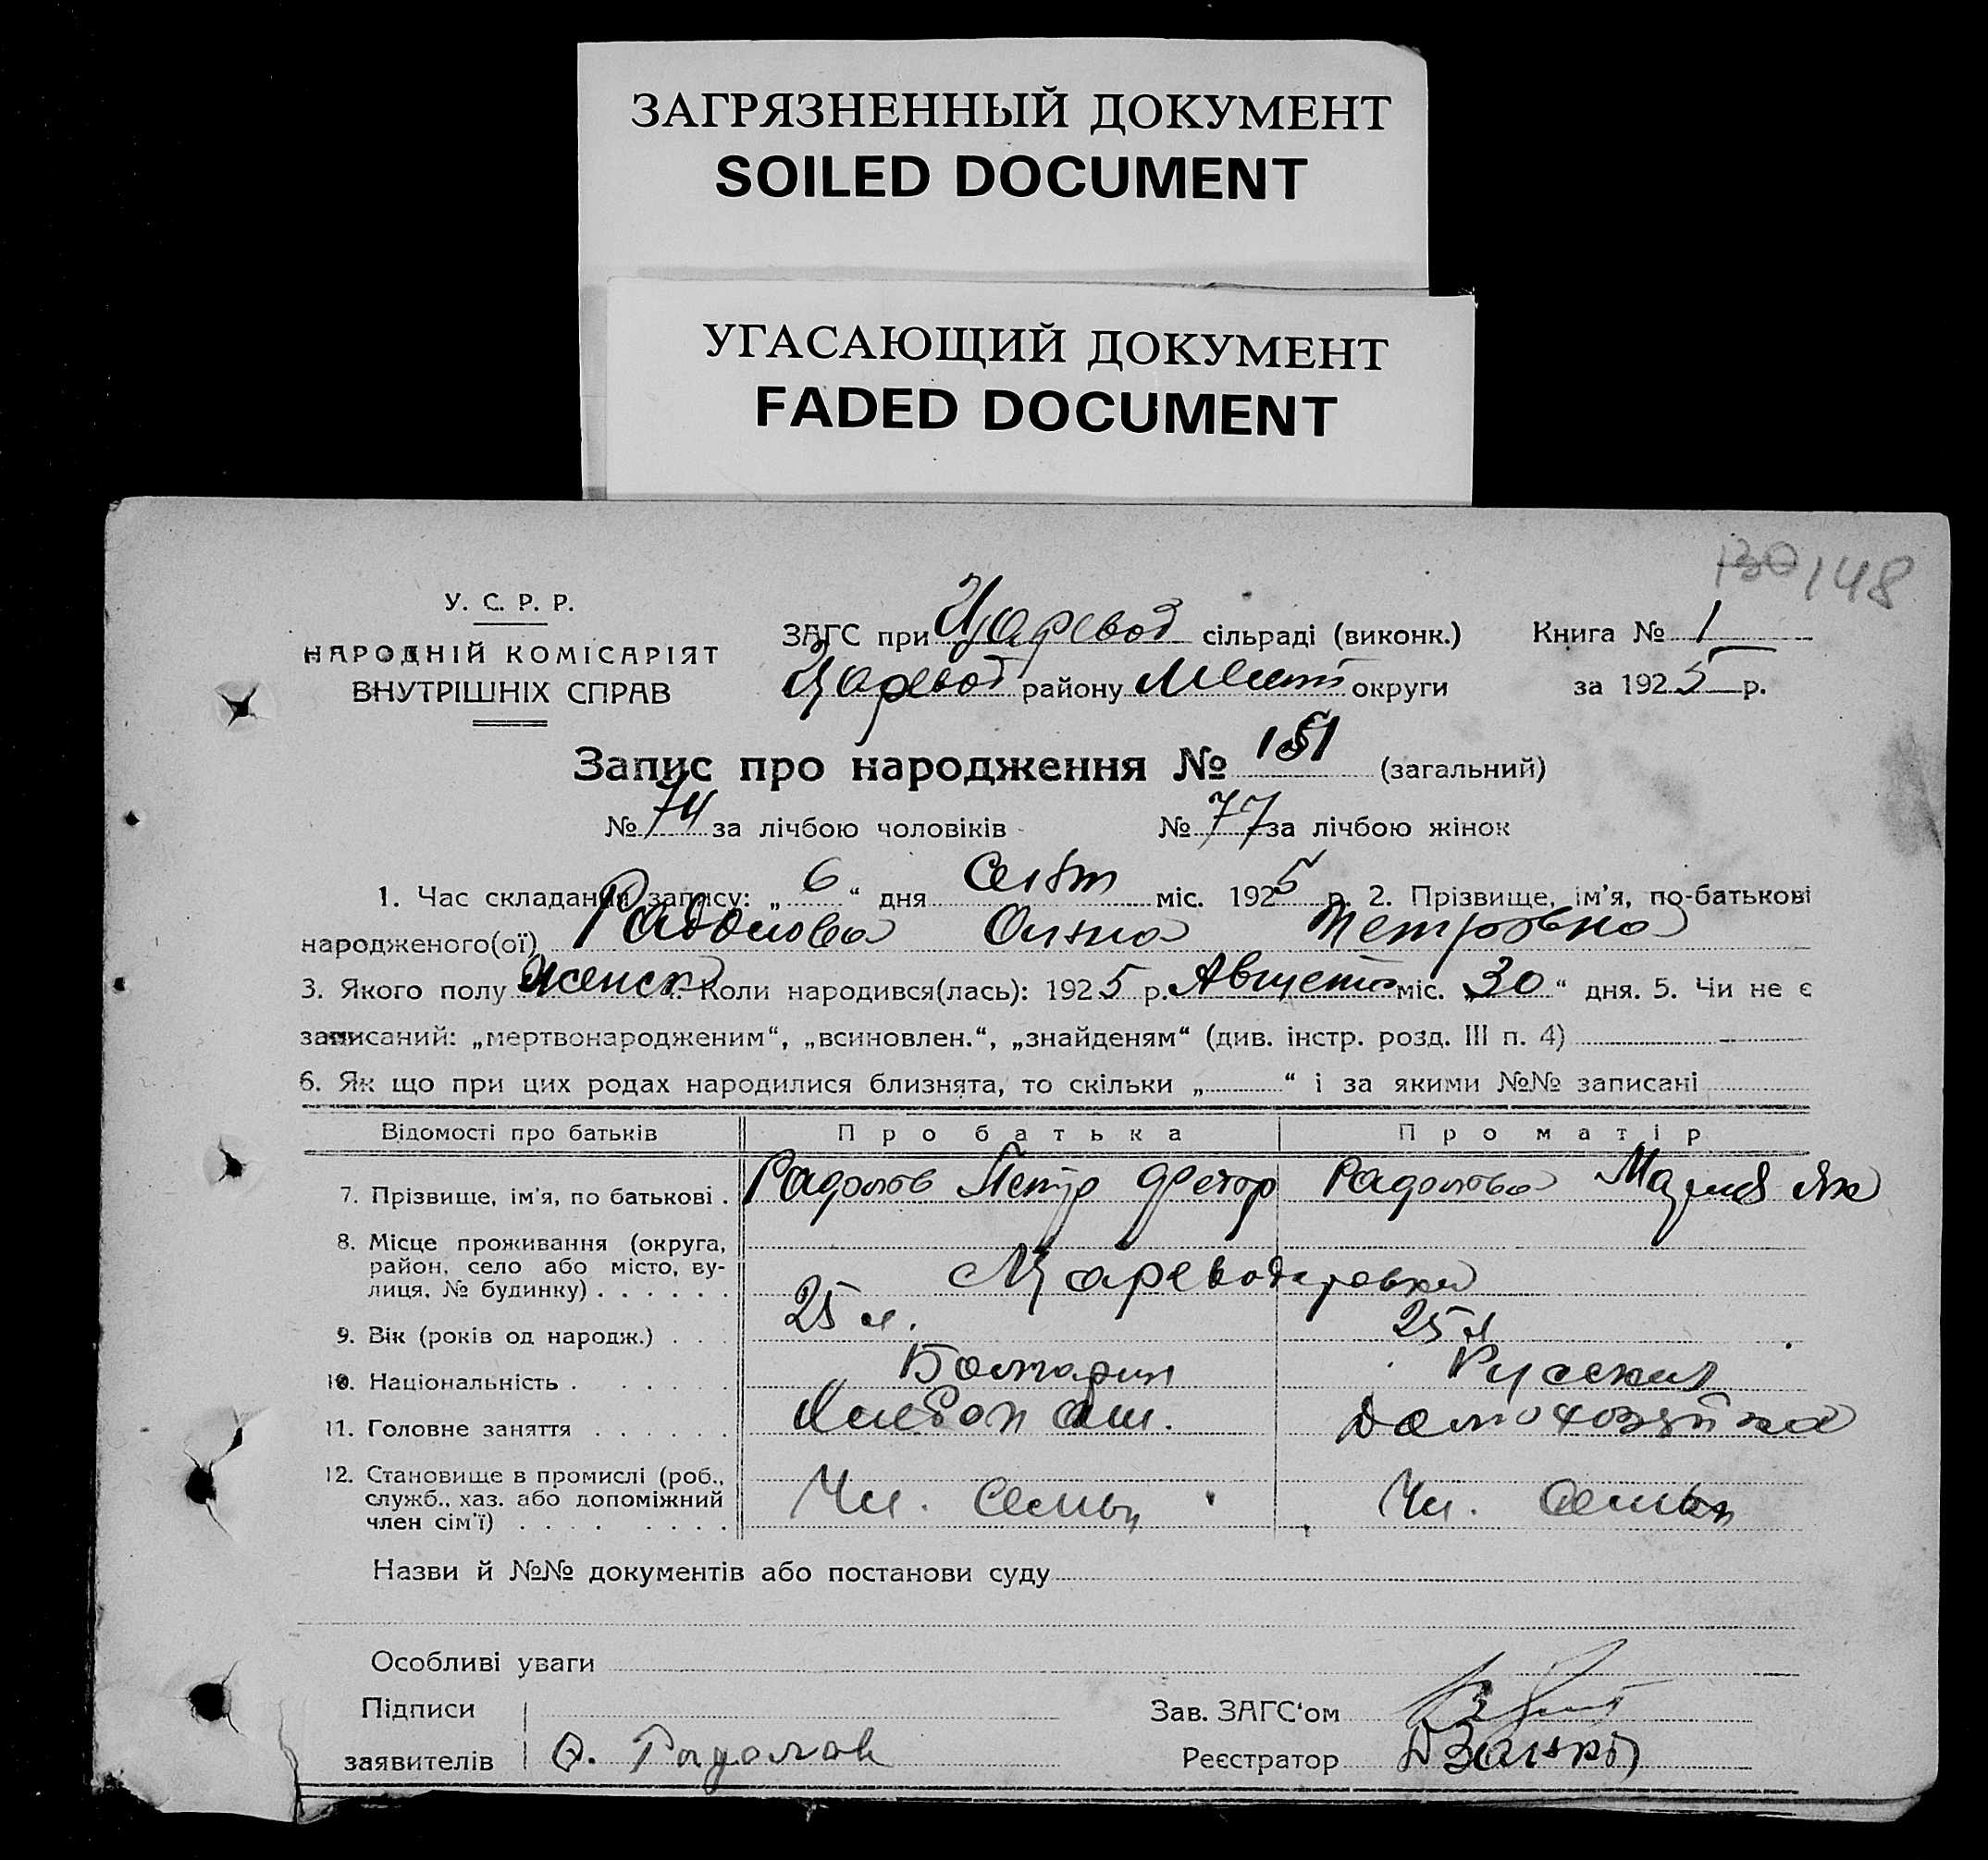 ЗАГРЯЗНЕННЫЙ ДОКУМЕНТ
SOILED DOCUMENT
УГАСАЮЩИЙ ДОКУМЕНТ
FADED DOCUMENT
130 148
У. С. Р. Р.
НАРОДНІЙ КОМІСАРІЯТ
ВНУТРІШНІХ СПРАВ
ЗАГС при Царевод сільраді (виконк.) Книга № 1
Царевод району Мелит округи за 1925 р.
Запис про народження № 151 (загальний)
№ 74 за лічбою чоловіків № 77 за лічбою жінок
1. Час складання запису: „6“ дня Сент міс. 1925 р. 2. Прізвище, ім'я, по-батькові
народженого(ої) Радолова Анна Петровна
3. Якого полу женск 4. Коли народився(лась): 1925 р. Августа міс. „30“ дня. 5. Чи не є
записаний: „мертвонародженим“, „всиновлен.“, „знайденям“ (див. інстр. розд. III п. 4)
6. Як що при цих родах народилися близнята, то скільки „ “ і за якими №№ записані
Відомості про батьків Про батька Про матір
7. Прізвище, ім'я, по батькові . Радолов Петр Федор Радолова Мария Як
8. Місце проживання (округа,
район, село або місто, ву-
лиця, № будинку) . . . . . . Цареводаровка
9. Вік (років од народж.) . . . 25 л. 25 л
10. Національність . . . . . . Болгарин Русская
11. Головне заняття . . . . . . Хлебопаш. Домохозяйка
12. Становище в промислі (роб.,
служб., хаз. або допоміжний
член сім'ї) . . . . . . . . Чл. семьи Чл. семьи
Назви й №№ документів або постанови суду
Особливі уваги
Підписи Зав. ЗАГС'ом
заявителів Радолов Реєстратор